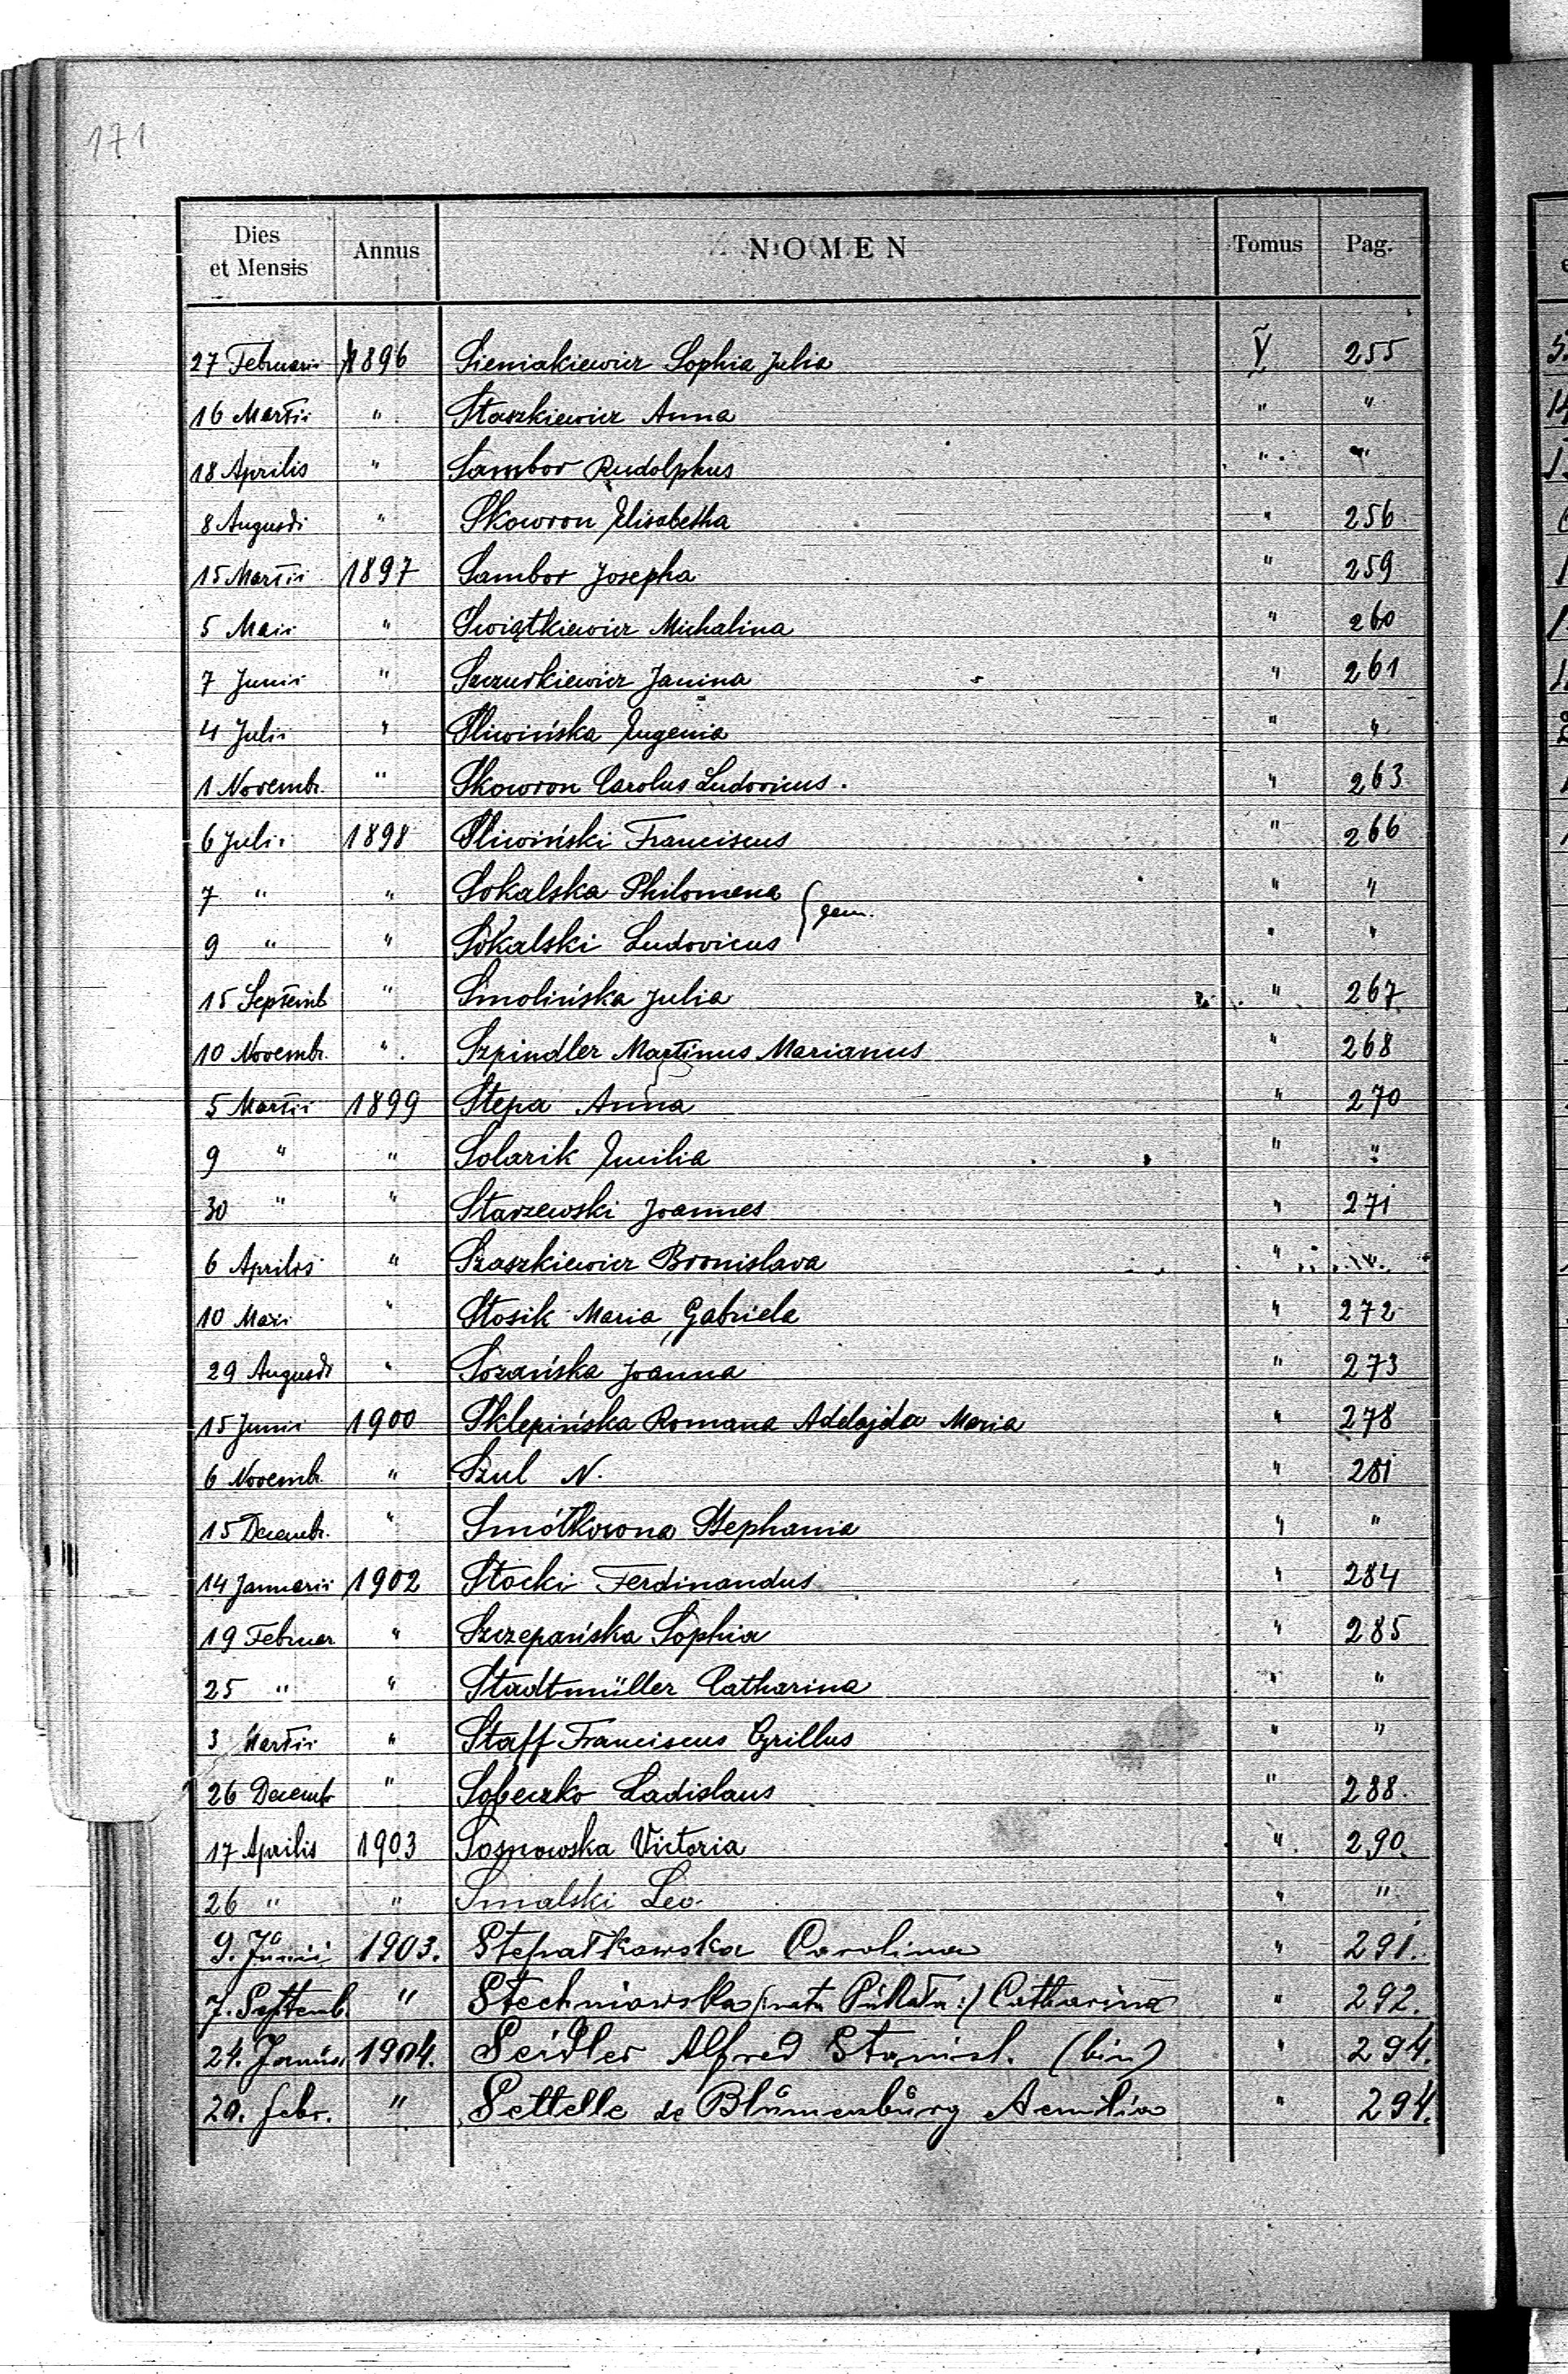 171
Dies et Mensis Annus NOMEN Tomus Pag.
27 Februarii 1896 Sieniakiewicz Sophia Julia V 255
16 Martii " Staszkiewicz Anna " "
18 Aprilis " Sambor Rudolphus " "
8 Augusti " Skowron Elisabetha " 256
15 Martii 1897 Sambor Josepha " 259
5 Maii " Swiątkiewicz Michalina " 260
7 Junii " Szczurkiewicz Janina " 261
4 Julii " Sliwińska Eugenia " "
1 Novembr. " Skowron Carolus Ludovicus. " 263
6 Julii 1898 Sliwiński Franciscus " 266
7 " " Sokalska Philomena " "
gem.
9 " " Sokalski Ludovicus " "
15 Septemb " Smolińska Julia " 267
10 Novembr. " Szpindler Martinus Marianus " 268
5 Martii 1899 Stepa Anna " 270
9 " " Solarik Emilia " "
30 " " Starzewski Joannes " 271
6 Aprilis " Szaszkiewicz Bronislava " "
10 Maii " Stosik Maria Gabriela " 272
29 Augusti " Sozańska Joanna " 273
15 Junii 1900 Sklepińska Romana Adelajda Maria " 278
6 Novembr. " Szul N. " 281
15 Decembr. " Smótkowna Stephania " "
14 Januarii 1902 Stocki Ferdinandus " 284
19 Februar " Szczepańska Sophia " 285
25 " " Stadtmüller Catharina " "
3 Martii " Staff Franciscus Cyrillus " "
26 Decemb " Sobeczko Ladislaus " 288.
17 Aprilis 1903 Sosnowska Victoria " 290.
26 " " Smalski Leo. " "
9. Junii 1903. Stepatkowska Carolina " 291.
7. Septemb. " Stechniowska (nata :) Catharina " 292.
24. 1904. Seidler Alfred Stanisl. (bin) " 294.
29. Febr. " Settelle de Blumenburg Aemilia " 294.